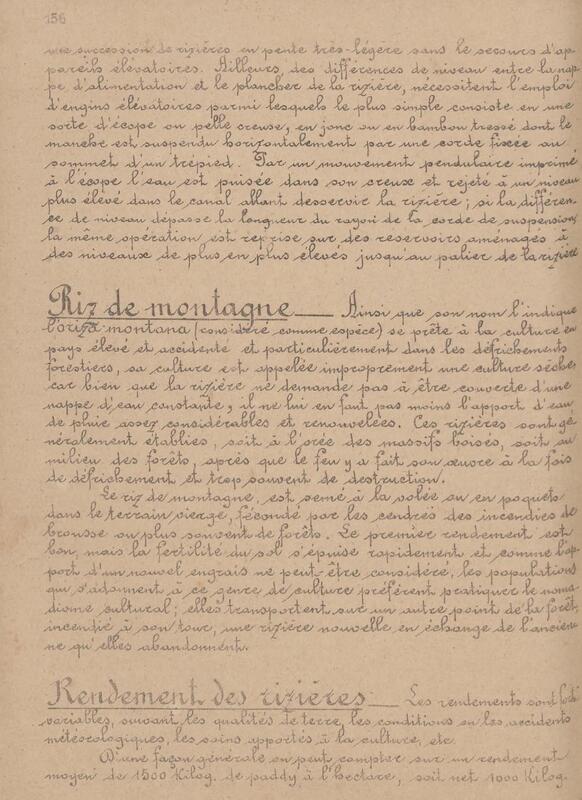 156
une succession de rizières en pente très-légère sans le secours d'ap
pareils élévatoires. Ailleurs, des différences de niveau entre la nap
pe d'alimentation et le plancher de la rizière, nécessitent l'emploi
d'engins élévatoires parmi lesquels le plus simple consiste en une
sorte d'écope ou pelle creuse, en jonc ou en bambou tressé dont le
manche est suspendu horizontalement par une corde fixée au
sommet d'un trépied. Par un mouvement pendulaire imprimé
à l'écope l'eau est puisée dans son creux et rejeté à un niveau
plus élevé dans le canal allant desservir la rizière; si la différen
ce de niveau dépasse la longueur du rayon de la corde de suspension
la même opération est reprise sur des réservoirs aménagés à
des niveaux de plus en plus élevés jusqu'au palier de la rizière
Riz de montagne — Ainsi que son nom l'indique
l'oriza montana (considéré comme espèce) se prête à la culture en
pays élevé et accidenté et particulièrement dans les défrichements
forestiers, sa culture est appelée improprement une culture sèche
car bien que la rizière ne demande pas à être couverte d'une
nappe d'eau constante, il ne lui en faut pas moins l'apport d'eau
de pluie assez considérables et renouvelées. Ces rizières sont gé
néralement établies, soit à l'orée des massifs boisés, soit au
milieu des forêts, après que le feu y a fait son œuvre à la fois
de défrichement et trop souvent de destruction.
Le riz de montagne, est semé à la volée ou en poquets
dans le terrain vierge, fécondé par les cendres des incendies de
brousse ou plus souvent de forêts. Le premier rendement est
bon, mais la fertilité du sol s'épuise rapidement et comme l'ap
port d'un nouvel engrais ne peut-être considéré, les populations
qui s'adonnent à ce genre de culture préfèrent pratiquer le noma
disme cultural; elles transportent sur un autre point de la forêt,
incendié à son tour, une rizière nouvelle en échange de l'ancien
ne qu'elles abandonnent.
Rendement des rizières — Les rendements sont fort
variables, suivant les qualités de terre, les conditions ou les accidents
météorologiques, les soins apportés à la culture, etc.
D'une façon générale on peut compter sur un rendement
moyen de 1500 Kilog. de paddy à l'hectare, soit net 1000 Kilog.